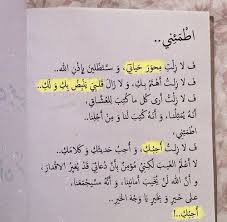 اطْمَئِنِّي..
فَ لا زِلْتِ مِحْوَرَ حَيَاتِي، وَ سَتَظَلِّينَ بِإِذْنِ اللهِ..
فَ لا زِلْتُ أَهْتَمُّ بِكِ، وَ لا زَالَ قَلْبِي يَنْبُضُ بِكِ وَ لَكِ..
فَ لا زِلْتُ أَرَى كُلَّ مَا كُتِبَ لِلْعُشَّاقِ،
أَنَّهُ يُمَثِّلُنَا، وَ أَنَّهُ كُتِبَ لَنَا وَ مِنْ أَجْلِنَا..
اطْمَئِنِّي..
فَ لا زِلْتُ أُحِبُّكِ، وَ أُحِبُّ حَدِيثَكِ وَ كَلامَكِ..
لا أَعْلَمُ الغَيْبَ لَكِنِّي مُؤْمِنٌ بِأَنَّ دُعَائِي قَدْ يُغَيِّرُ الأَقْدَارَ،
وَ أَنَّ اللهَ لَنْ يُخَيِّبَ أَمَانِينَا، وَ أَنَّهُ سَيَجْمَعُنَا،
عَلَى خَيْرٍ وَ بِخَيْرٍ يَا وَجْهَ الخَيْرِ..
أُحِبُّكِ..!